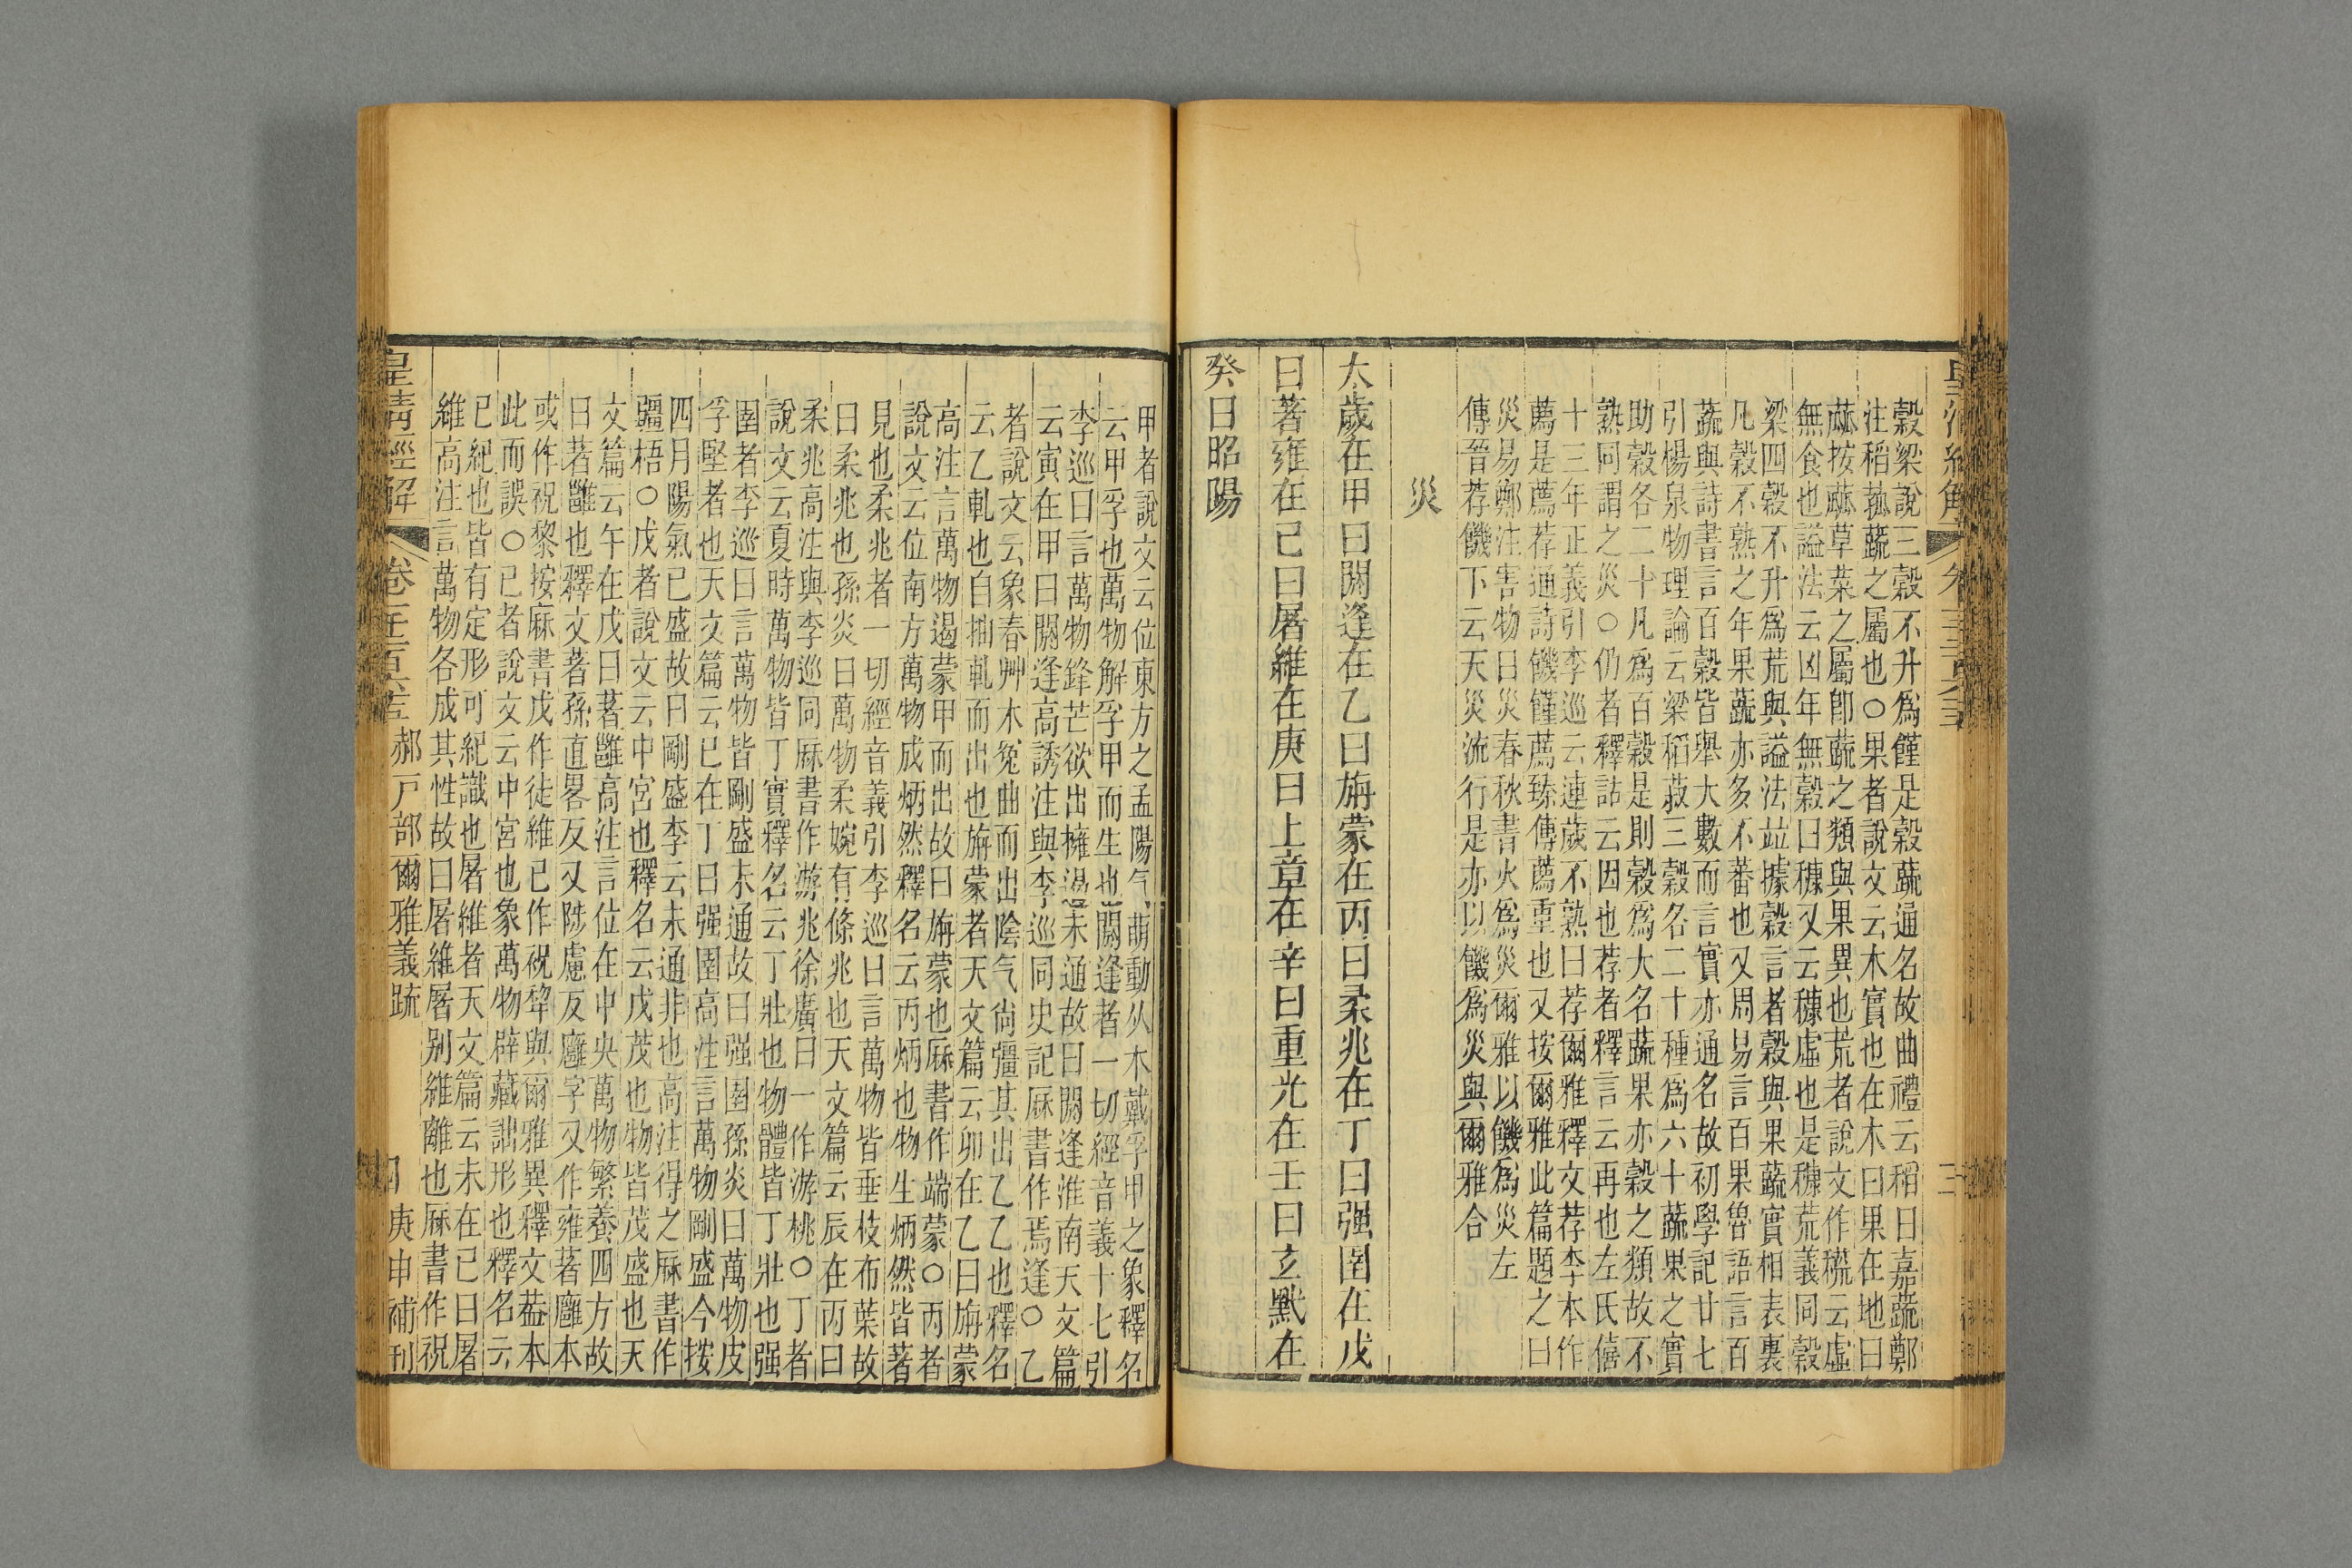 穀梁說三穀不升爲饉是穀蔬通名故曲禮云稻曰嘉蔬鄭
注稻菰蔬之屬也〇果者說文云木實也在木曰果在地曰
蓏按蓏草菜之屬卽蔬之類與果異也荒者說文作𥝖云虛
無食也謚法云凶年無穀曰穅又云穅虛也是穅荒義同穀
梁四穀不升爲荒與謚法竝據穀言者穀與果蔬實相表裏
凡穀不熟之年果蔬亦多不蕃也又周易言百果魯語言百
蔬與詩書言百穀皆舉大數而言實亦通名故初學記廿七
引楊泉物理論云梁稻菽三穀各二十種爲六十蔬果之實
助穀各二十凡爲百穀是則穀爲大名蔬果亦穀之類故不
熟同謂之災〇仍者釋詁云因也荐者釋言云再也左氏僖
十三年正義引李巡云連歲不熟曰荐爾雅釋文荐李本作
薦是薦荐通詩饑饉薦臻傳薦重也又按爾雅此篇題之曰
災易鄭注害物曰災春秋書火爲災爾雅以饑爲災左
傳晉荐饑下云天災流行是亦以饑爲災與爾雅合
災
大歲在甲曰閼逢在乙曰旃蒙在丙曰柔兆在丁曰强圉在戊
曰著雍在己曰屠維在庚曰上章在辛曰重光在壬曰玄黓在
癸曰昭陽
甲者說文云位東方之孟陽气萌動从木戴孚甲之象釋名
云甲孚也萬物解孚甲而生也閼逢者一切經音義十七引
李巡曰言萬物鋒芒欲出擁遏未通故曰閼逢淮南天文篇
云寅在甲曰閼逢高誘注與李巡同史記厤書作焉逢〇乙
者說文云象春艸木冤曲而出陰气尙彊其出乙乙也釋名
云乙軋也自抽軋而出也旃蒙者天文篇云卯在乙曰旃蒙
高注言萬物遏蒙甲而出故曰旃蒙也厤書作端蒙〇丙者
說文云位南方萬物成炳然釋名云丙炳也物生炳然皆著
見也柔兆者一切經音義引李巡曰言萬物皆垂枝布葉故
曰柔兆也孫炎曰萬物柔婉有條兆也天文篇云辰在丙曰
柔兆高注與李巡同厤書作游兆徐廣曰一作游桃〇丁者
說文云夏時萬物皆丁實釋名云丁壯也物體皆丁壯也强
圉者李巡曰言萬物皆剛盛未通故曰强圉孫炎曰萬物皮
孚堅者也天文篇云巳在丁曰强圉高注言萬物剛盛今按
四月陽氣已盛故曰剛盛李云未通非也高注得之厤書作
疆梧〇戊者說文云中宮也釋名云戊茂也物皆茂盛也天
文篇云午在戊曰著雝高注言位在中央萬物繁養四方故
曰著雝也釋文著孫直畧反又陟慮反雝字又作雍著雝本
或作祝黎按厤書戊作徒維己作祝犂與爾雅異釋文葢本
此而誤〇己者說文云中宮也象萬物辟藏詘形也釋名云
已紀也皆有定形可紀識也屠維者天文篇云未在已曰屠
維高注言萬物各成其性故曰屠維屠别維離也厤書作祝
皇清經解 卷 郝戸部爾雅義疏 庚申補刊